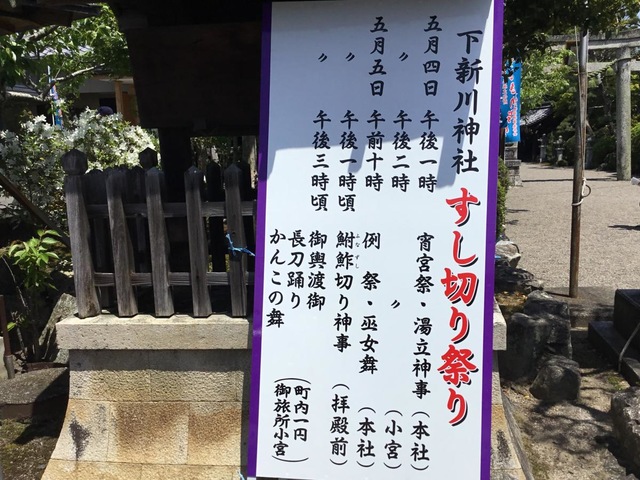 下新川神社 すし切り祭り
五月四日 午後一時 宵宮祭・湯立神事(本社)
〃 午後二時 〃 (小宮)
五月五日 午前十時 例 祭・巫女舞 (本社)
〃 午後一時頃 鮒鮓切り神事 (拝殿前)
ふなずし
〃 午後三時頃 御輿渡御
長刀踊り
かんこの舞
(町内一円
御旅所小宮)